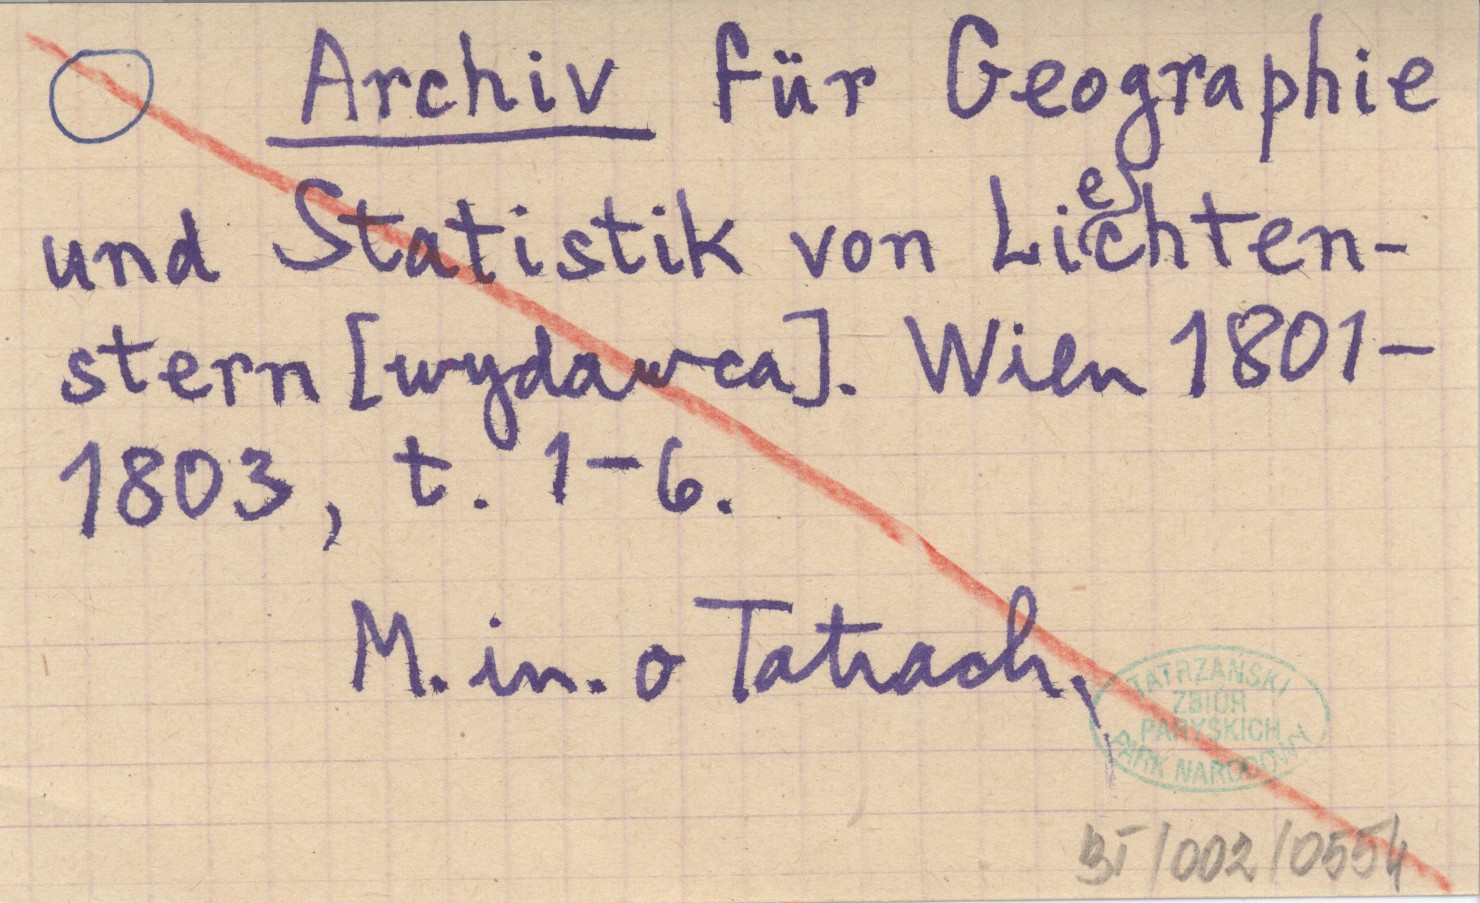 Archiv für Geographie
und Statistik von Liechten-
stern [wydawca]. Wien 1801-
1803, t. 1-6.
M. in. o Tatrach.
TATRZAŃSKI
ZBIÓR
PARYSKICH
PARK NARODOWY
BT/002/0554